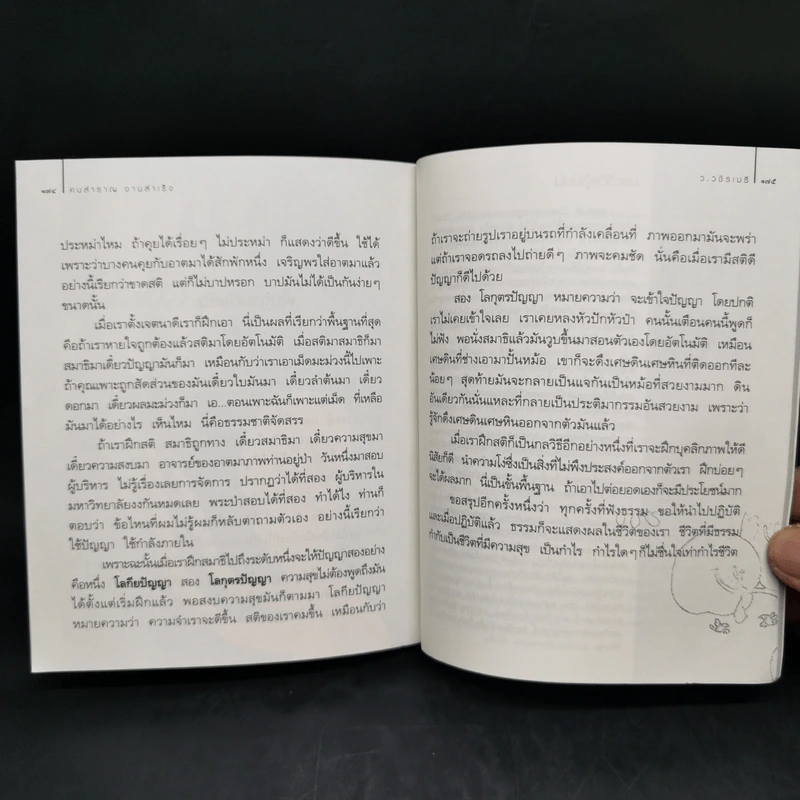 ๑๗๔ | คนสำราญ งานสำเร็จ
ประหม่าไหม ถ้าคุยได้เรื่อยๆ ไม่ประหม่า ก็แสดงว่าดีขึ้น ใช้ได้
เพราะว่าบางคนคุยกับอาตมาได้สักพักหนึ่ง เจริญพรใส่อาตมาแล้ว
อย่างนี้เรียกว่าขาดสติ แต่ก็ไม่บาปหรอก บาปมันไม่ได้เป็นกันง่ายๆ
ขนาดนั้น
เมื่อเราตั้งเจตนาดีเราก็ฝึกเอา นี่เป็นผลที่เรียกว่าพื้นฐานที่สุด
คือถ้าเราหายใจถูกต้องแล้วสติมาโดยอัตโนมัติ เมื่อสติมาสมาธิก็มา
สมาธิมาเดี๋ยวปัญญามันก็มา เหมือนกับว่าเราเอาเม็ดมะม่วงนี้ไปเพาะ
ถ้าคุณเพาะถูกสัดส่วนของมันเดี๋ยวใบมันมา เดี๋ยวลำต้นมา เดี๋ยว
ดอกมา เดี๋ยวผลมะม่วงก็มา เอ...ตอนเพาะฉันก็เพาะแต่เม็ด ที่เหลือ
มันมาได้อย่างไร เห็นไหม นี่คือธรรมชาติจัดสรร
ถ้าเราฝึกสติ สมาธิถูกทาง เดี๋ยวสมาธิมา เดี๋ยวความสุขมา
เดี๋ยวความสงบมา อาจารย์ของอาตมาภาพท่านอยู่ป่า วันหนึ่งมาสอบ
ผู้บริหาร ไม่รู้เรื่องเลยการจัดการ ปรากฏว่าได้ที่สอง ผู้บริหารใน
มหาวิทยาลัยงงกันหมดเลย พระป่าสอบได้ที่สอง ทำได้ไง ท่านก็
ตอบว่า ข้อไหนที่ผมไม่รู้ผมก็หลับตาถามตัวเอง อย่างนี้เรียกว่า
ใช้ปัญญา ใช้กำลังภายใน
เพราะฉะนั้นเมื่อเราฝึกสมาธิไปถึงระดับหนึ่งจะให้ปัญญาสองอย่าง
คือหนึ่ง โลกียปัญญา สอง โลกุตรปัญญา ความสุขไม่ต้องพูดถึงมัน
ได้ตั้งแต่เริ่มฝึกแล้ว พอสงบความสุขมันก็ตามมา โลกียปัญญา
หมายความว่า ความจำเราจะดีขึ้น สติของเราคมขึ้น เหมือนกับว่า
ว.วชิรเมธี | ๑๗๕
ถ้าเราจะถ่ายรูปเราอยู่บนรถที่กำลังเคลื่อนที่ ภาพออกมามันจะพร่า
แต่ถ้าเราจอดรถลงไปถ่ายดีๆ ภาพจะคมชัด นั่นคือเมื่อเรามีสติดี
ปัญญาก็ดีไปด้วย
สอง โลกุตรปัญญา หมายความว่า จะเข้าใจปัญญา โดยปกติ
เราไม่เคยเข้าใจเลย เราเคยหลงหัวปักหัวปำ คนนั้นเตือนคนนี้พูดก็
ไม่ฟัง พอนั่งสมาธิแล้วมันวูบขึ้นมาสอนตัวเองโดยอัตโนมัติ เหมือน
เศษดินที่ช่างเอามาปั้นหม้อ เขาก็จะดึงเศษดินเศษหินที่ติดออกทีละ
น้อยๆ สุดท้ายมันจะกลายเป็นแจกันเป็นหม้อที่สวยงามมาก ดิน
อันเดียวกันนั่นแหละที่กลายเป็นประติมากรรมอันสวยงาม เพราะว่า
รู้จักดึงเศษดินเศษหินออกจากตัวมันแล้ว
เมื่อเราฝึกสติก็เป็นกลวิธีอีกอย่างหนึ่งที่เราจะฝึกบุคลิกภาพให้ดี
นิสัยก็ดี นำความโง่ซึ่งเป็นสิ่งที่ไม่พึงประสงค์ออกจากตัวเรา ฝึกบ่อยๆ
จะได้ผลมาก นี่เป็นขั้นพื้นฐาน ถ้าเอาไปต่อยอดเองก็จะมีประโยชน์มาก
ขอสรุปอีกครั้งหนึ่งว่า ทุกครั้งที่ฟังธรรม ขอให้นำไปปฏิบัติ
และเมื่อปฏิบัติแล้ว ธรรมก็จะแสดงผลในชีวิตของเรา ชีวิตที่มีธรรม
กำกับเป็นชีวิตที่มีความสุข เป็นกำไร กำไรใดๆ ก็ไม่ชื่นใจเท่ากำไรชีวิต